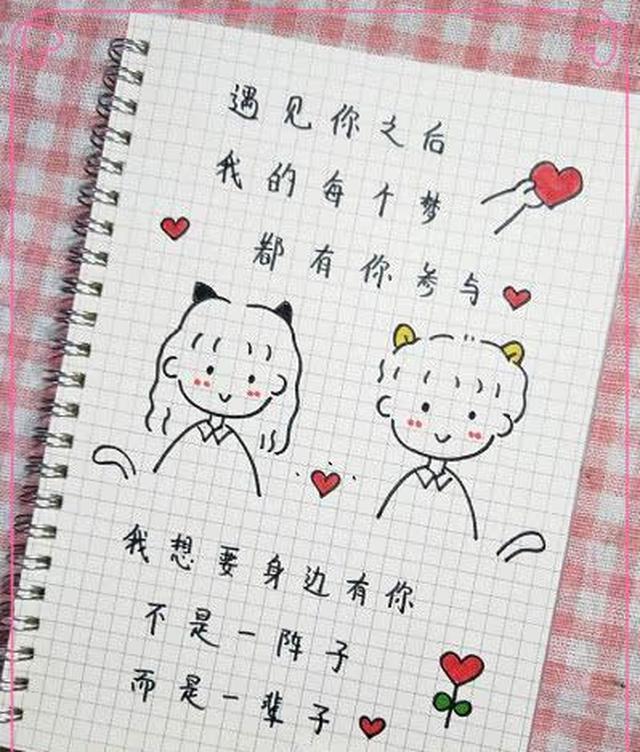 遇见你之后
我的每个梦
都有你参与
我想要身边有你
不是一阵子
而是一辈子